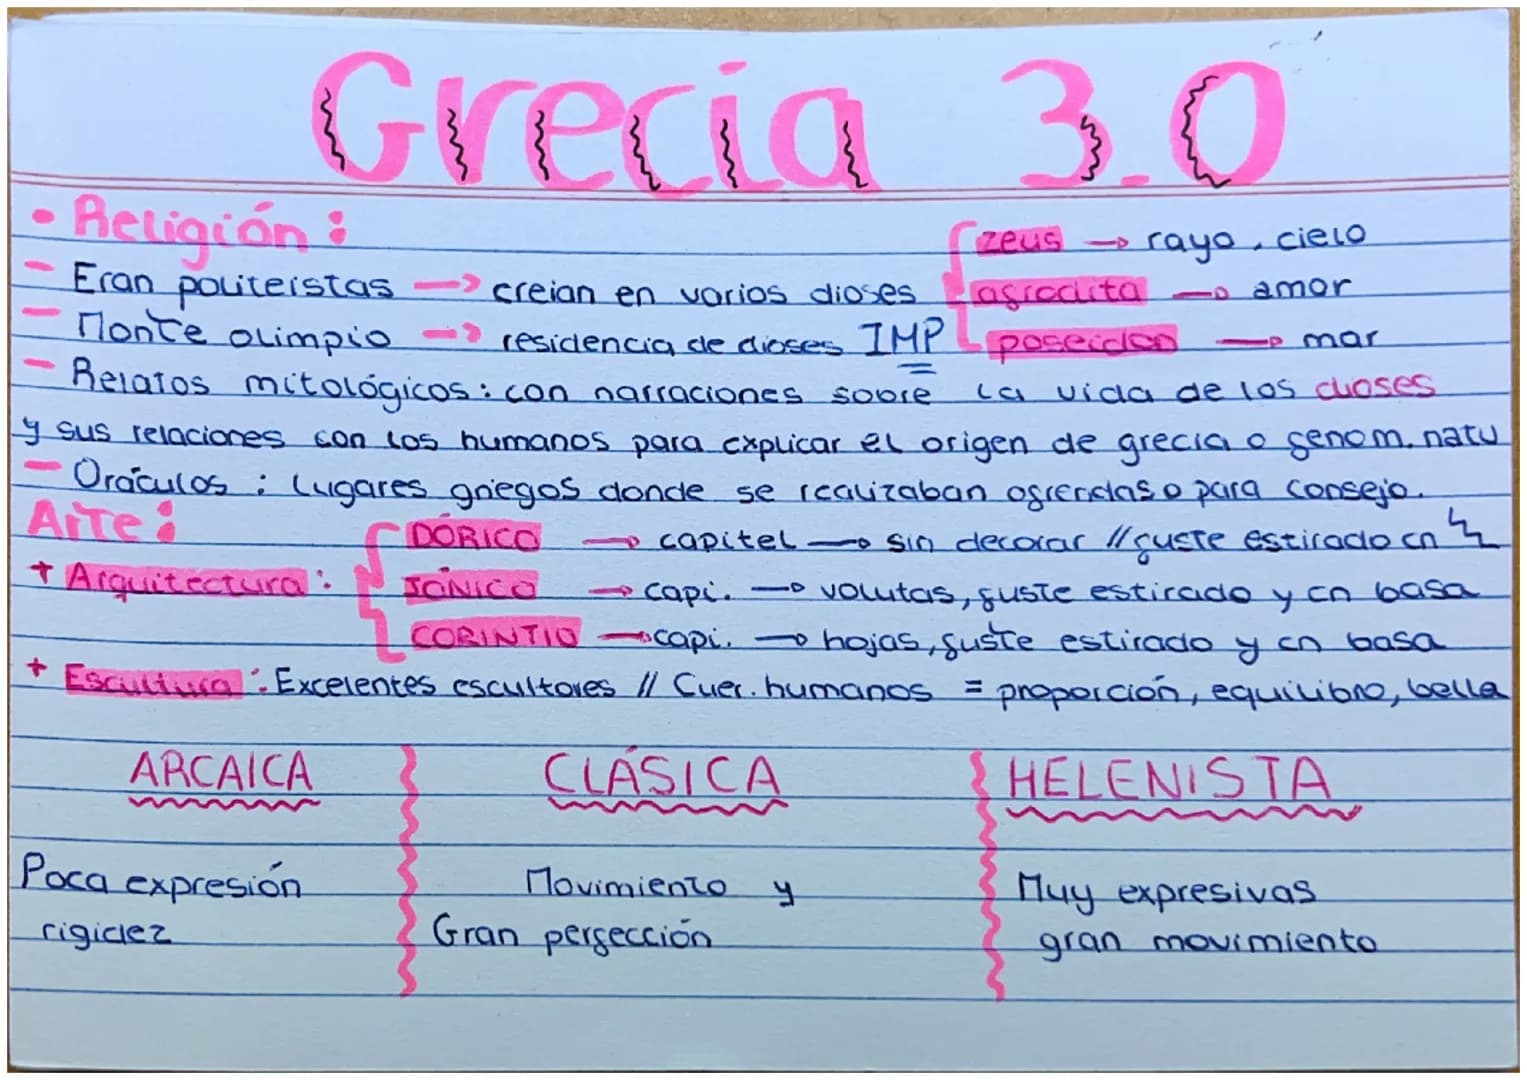 Grecia 3.0
• Religión:
- Eran politeistas → creian en varios dioses
zeus → rayo, cielo
afrodita → amor
poseidon → mar
- Monte olimpio → residencia de dioses IMP
- Relatos mitológicos: con narraciones sobre la vida de los dioses
y sus relaciones con los humanos para explicar el origen de grecia o fenom. natu
- Oráculos: lugares griegos donde se realizaban ofrendas o para consejo.
Arte:
+ Arquitectura:
DÓRICO → capitel → sin decorar // fuste estirado en
JÓNICO → capi. → volutas, fuste estirado y cn basa
CORINTIO → capi. → hojas, fuste estirado y cn basa
+ Escultura: Excelentes escultores // Cuer. humanos = proporción, equilibrio, bella
ARCAICA
Poca expresión
rigidez
CLÁSICA
Movimiento y
Gran perfección
HELENISTA
Muy expresivas
gran movimiento